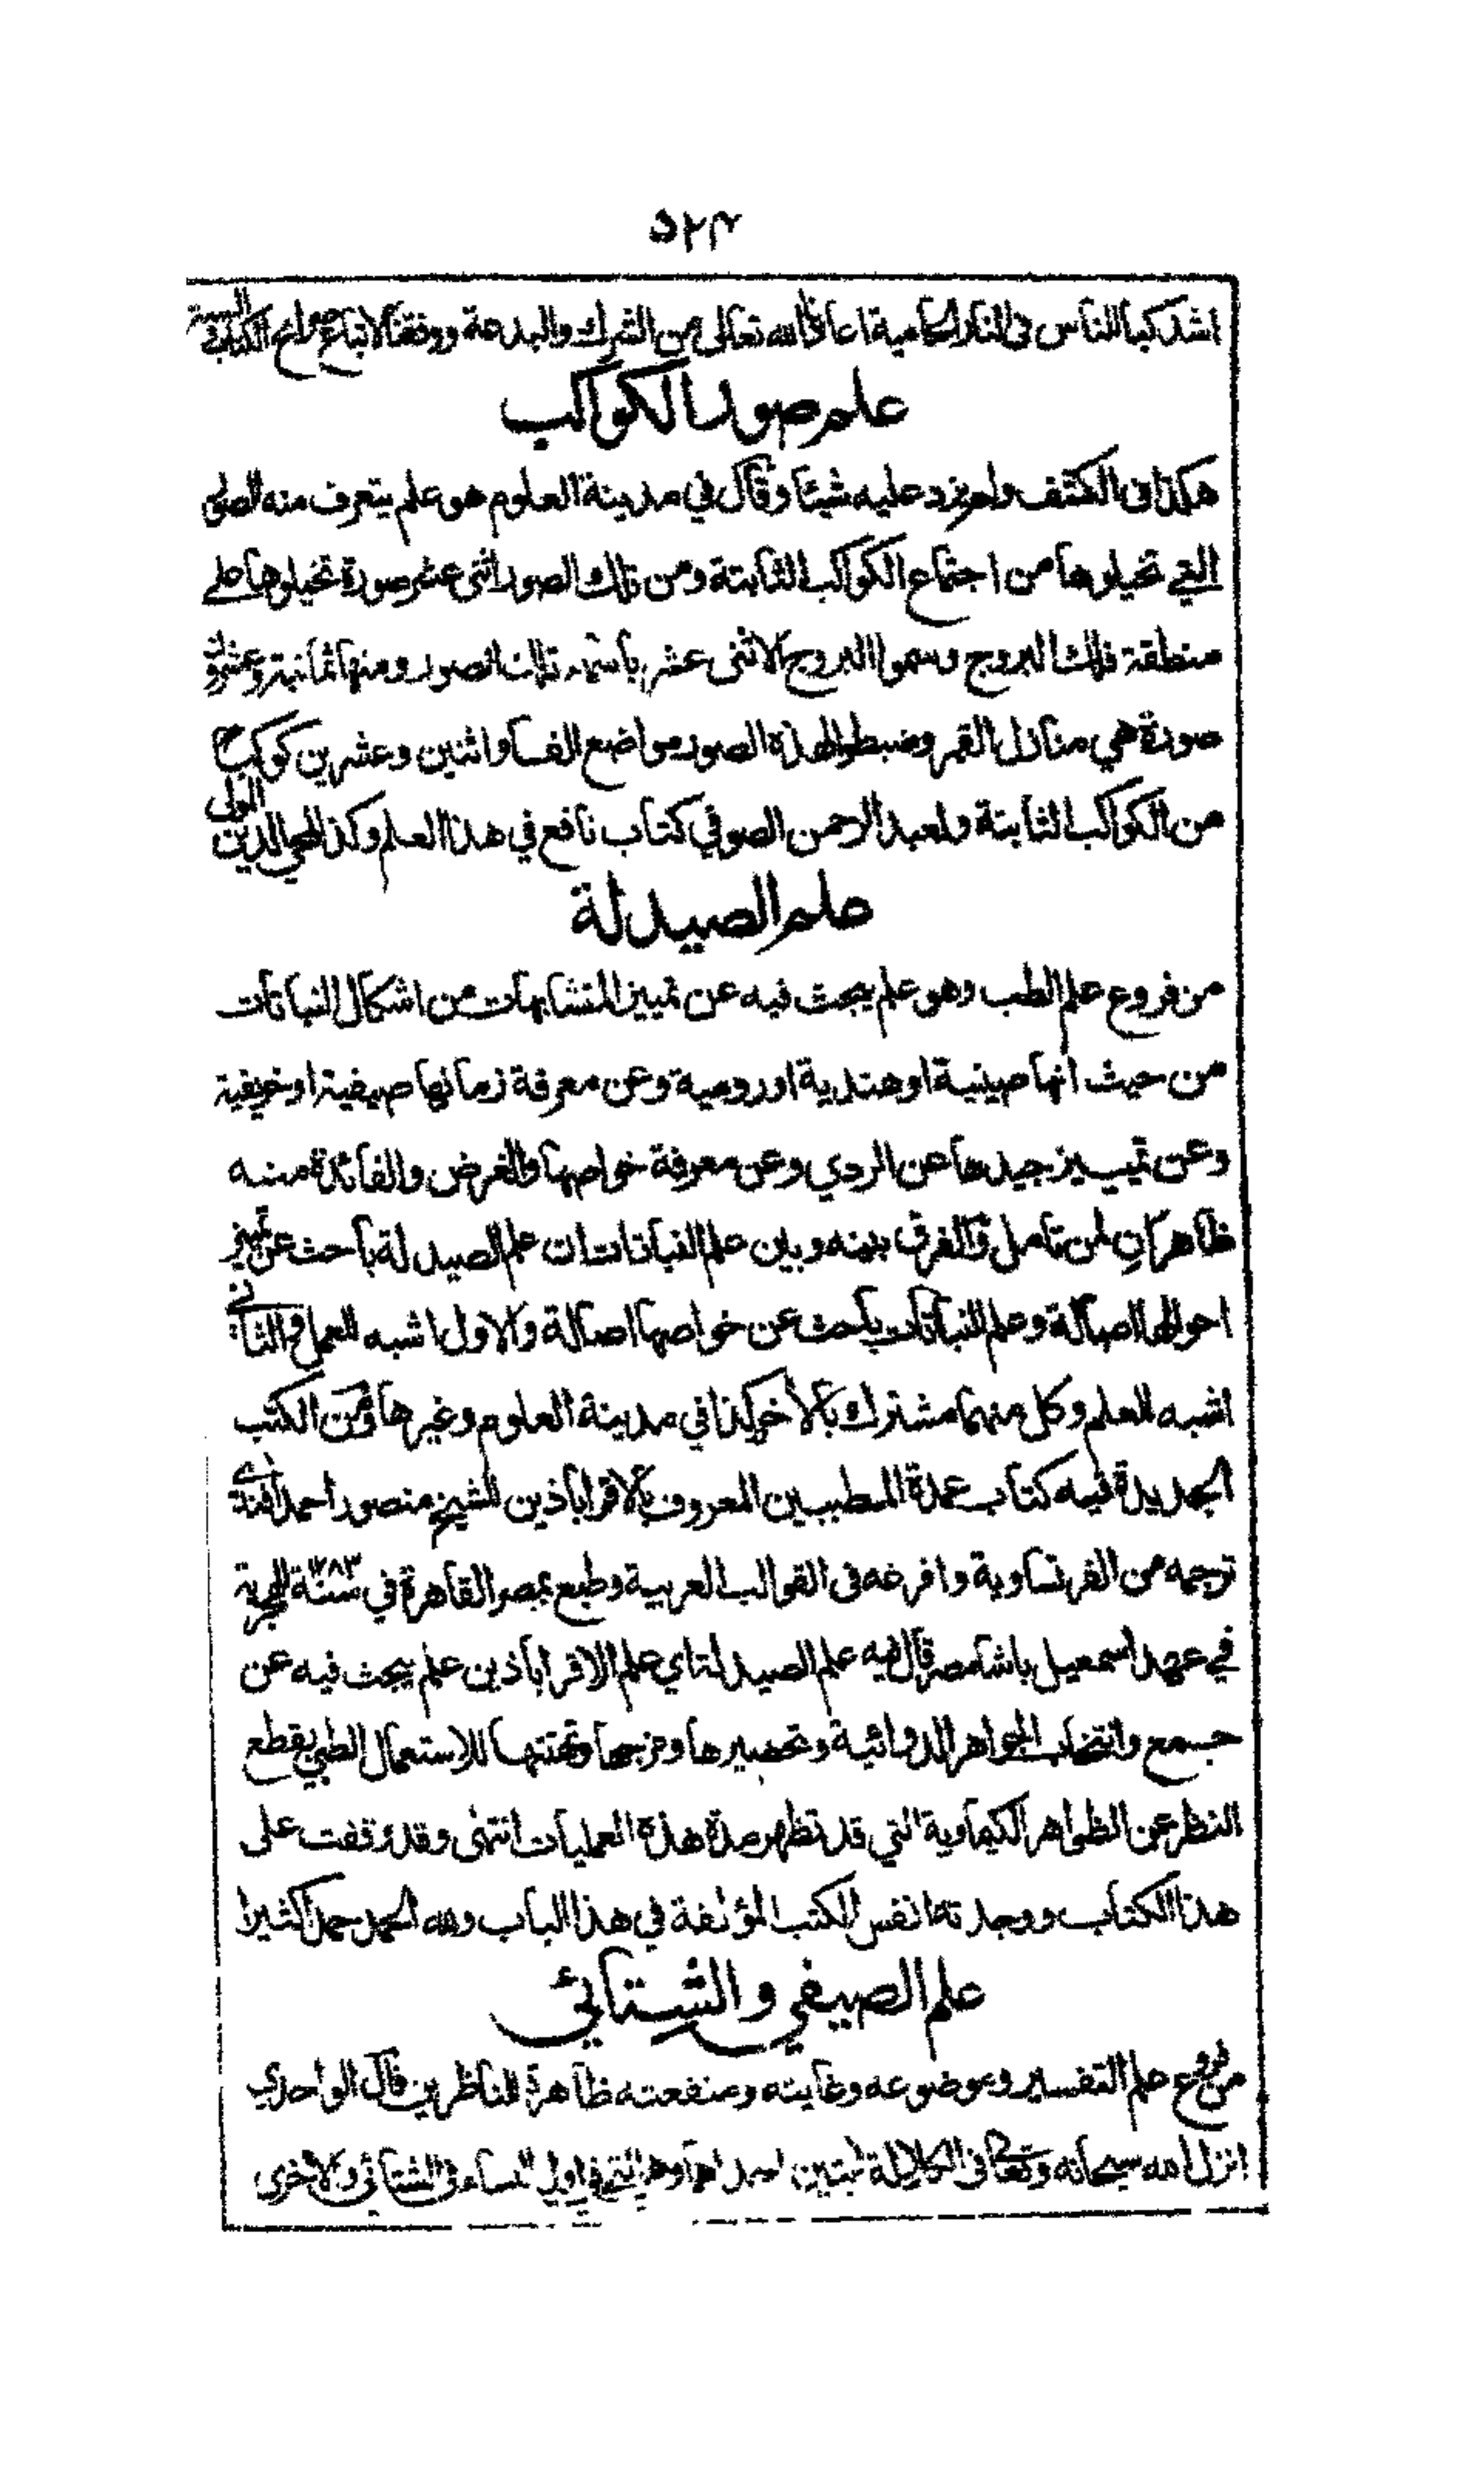 ٥٢٣
اشد كبا للناس في النار الحامية اعاذنا الله تعالى من الشرك والبدعة ووفقنا لاتباع الكتاب والسنة
علم صور الكواكب
هكذا في الكشف ولم يزد عليه شيئا وقال في مدينة العلوم هو علم يتعرف منه الصور
التي تخيلوها من اجتماع الكواكب الثابتة ومن تلك الصور اثنى عشر صورة تخيلوها على
منطقة فلك البروج وسموا البروج الاثنى عشر باسماء تلك الصور ومنها ثمانية وعشرون
صورة هي منازل القمر وضبطوا لهذه الصور مواضع الف واثنين وعشرين كوكبا
من الكواكب الثابتة ولعبد الرحمن الصوفي كتاب نافع في هذا العلم وكذا لمحي الدين
علم الصيدلة
من فروع علم الطب وهو علم يبحث فيه عن تمييز المتشابهات من اشكال النباتات
من حيث انها صينية او هندية او رومية وعن معرفة زمانها صيفية او خريفية
وعن تمييز جيدها عن الردي وعن معرفة خواصها والغرض والفائدة منه
ظاهران لمن تامل والفرق بينه وبين علم النباتات ان علم الصيدلة باحث عن تمييز
احوالها اصالة وعلم النباتات باحث عن خواصها اصالة والاول اشبه للعمل والثاني
اشبه للعلم وكل منهما مشترك بالآخر كذا في مدينة العلوم وغيرها ومن الكتب
الجديدة فيه كتاب عمدة المتطببين المعروف بالاقراباذين للشيخ منصور احمد افندي
ترجمه من الفرنساوية وافرغه في القوالب العربية وطبع بمصر القاهرة في سنة ١٢٨٣ الهجرية
في عهد اسمعيل باشا مصر قال فيه علم الصيدلة اي علم الاقراباذين علم يبحث فيه عن
جمع وانتخاب الجواهر الدوائية وتحضيرها ومزجها وتهيئتها للاستعمال الطبي بقطع
النظر عن الظواهر الكيماوية التي قد تظهر مدة هذه العمليات انتهى وقد وقفت على
هذا الكتاب ووجدته انفس الكتب المؤلفة في هذا الباب ولله الحمد حمدا كثيرا
علم الصيفي والشتائي
من فروع علم التفسير وموضوعه وغايته ومنفعته ظاهرة للناظرين قال الواحدي
انزل الله سبحانه وتعالى في الكلالة آيتين احداهما وهي التي في اول النساء في الشتائي والاخرى